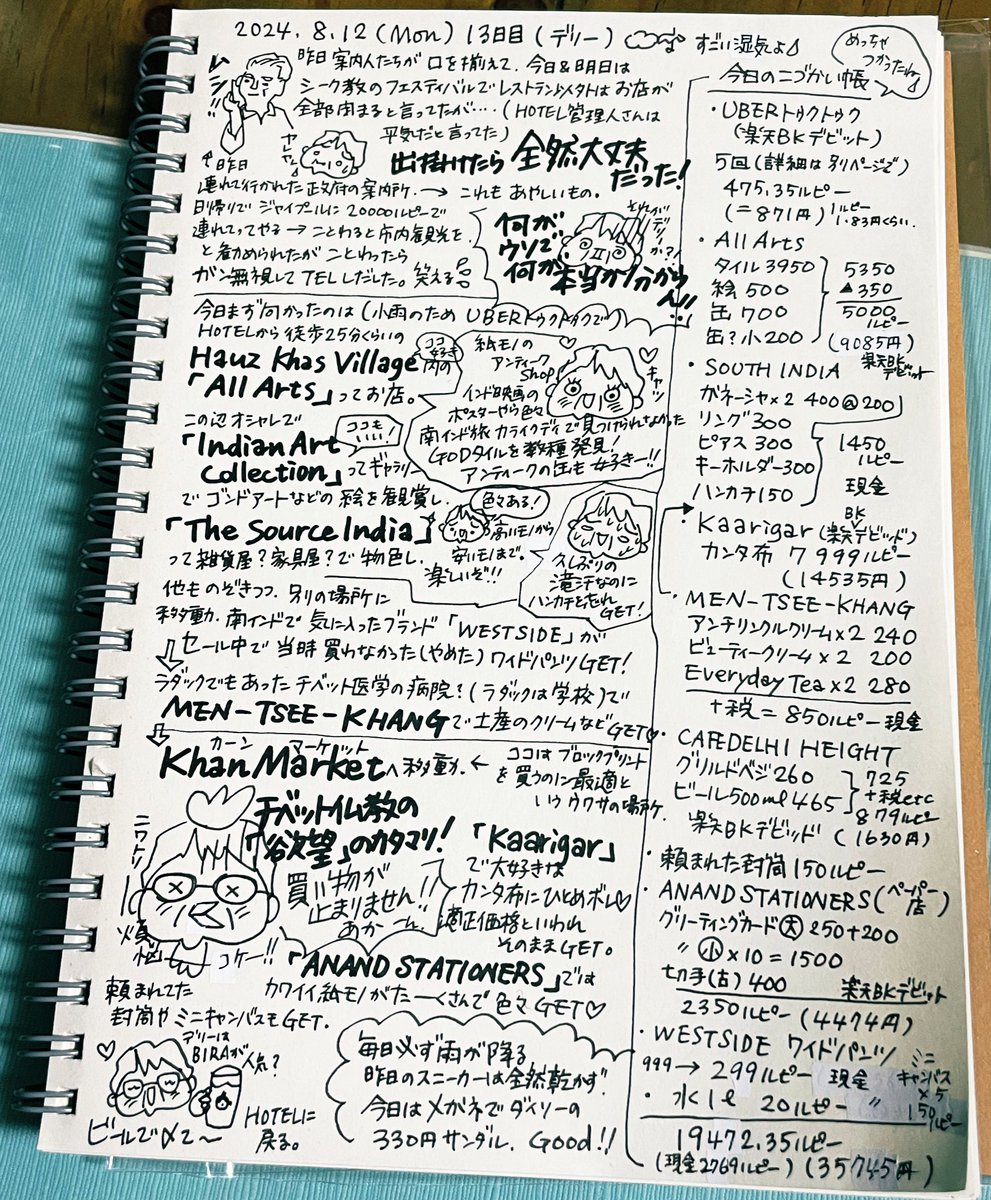 2024. 8.12 (Mon) 13日目 (デリー) すごい湿気よ
昨日 案内人たちが 口を揃えて、今日&明日は
シーク教のフェスティバルでレストラン以外はお店が
全部閉まると言ってたが…(HOTEL管理人さんは
平気だと言ってた)
ムシ!!
↑昨日
ヤレヤレ
出掛けたら 全然大丈夫
だった!
連れて行かれた正政府の案内所。→ これも あやしいもの。
日帰りで ジャイプールに 20000ルピーで
連れてってやる → ことわると市内観光を
と勧められたが ことわったら
ガン無視してTELしだした。笑える
何が
ウソで
何が本当か分からん!!
それがデリーか?!
今日まず向かったのは (小雨のため UBERトゥクトゥクで)
HOTELから徒歩25分くらいの
Hauz Khas Village内の
「All Arts」ってお店。
ココ好き
紙モノの
アンティーク
Shop
キャッ
インド映画の
ポスターやら色々
南インド旅 カライクディで見つけられなかった
GODタイルを数種発見!
アンティークの缶も好きー!!
この辺オシャレで
「Indian Art
Collection」ってギャラリー
ココも!
でゴンドアートなどの絵を観賞し、
「The Source India」
って雑貨屋?家具屋?で物色し、
色々ある!
高いモノから
安いモノまで。
楽しいぞ!!
久しぶりの
滝汗なのに
ハンカチを忘れ
GET!
他ものぞきつつ、別の場所に
移動。南インドで気に入ったブランド「WESTSIDE」が
セール中で 当時買わなかった(やめた)ワイドパンツGET!
ラダックでもあった チベット医学の病院?(ラダックは学校)で
MEN-TSEE-KHANGで土産のクリームなどGET♡
カーン マーケット
Khan Marketへ移動。← ココはブロックプリント
を買うのに最適と
いうウワサの場所。
チベット仏教の
「欲望」のカタマリ!
ニワトリ
煩悩
コケー!!
買い物が
止まりません!!
あかーん。
「Kaarigar」
で大好きな
カンタ布にひとめボレ♡
適正価格といわれ
そのままGET。
「ANAND STATIONERS」では
カワイイ紙モノがたーくさんで 色々GET♡
頼まれてた
封筒や ミニキャンバスもGET。
デリーは
BIRAが
人気?
ビールで〆て〜
HOTELに
戻る。
毎日必ず雨が降る。
昨日のスニーカーは全然乾かず
今日はメガネでダイソーの
330円サンダル。Good!!
めっちゃ
つかったわ
今日のこづかい帳
・UBERトゥクトゥク
(楽天BKデビット)
5回(詳細は別ページで)
475.35ルピー
(=871円) 1ルピー
1.83円くらい
・All Arts
タイル 3950
絵 500
缶 700
缶?小 200
5350
▲350
5000
ルピー
(9085円)
楽天BK
デビット
・SOUTH INDIA
ガネーシャ×2 400@200
リング 300
ピアス 300
キーホルダー300
ハンカチ150
1450
ルピー
現金
・Kaarigar (楽天デビッド)
BK
カンタ布 7999ルピー
(14535円)
・MEN-TSEE-KHANG
アンチリンクルクリーム×2 240
ビューティークリーム×2 200
Everyday Tea×2 280
+税=850ルピー 現金
・CAFE DELHI HEIGHT
グリルドベジ 260
ビール500ml 465
725
+税etc
879ルピー
楽天BKデビッド (1630円)
・頼まれた封筒 150ルピー
・ANAND STATIONERS (ペーパー店)
グリーティングカード 大 250+200
〃 小 ×10=1500
切手(古) 400 楽天BKデビット
2350ルピー (4474円)
・WESTSIDE ワイドパンツ
999 → 299ルピー 現金
ミニ
キャンバス
×5
150ルピー
・水1ℓ 20ルピー 〃
19472.35ルピー
(現金2769ルピー) (35745円)